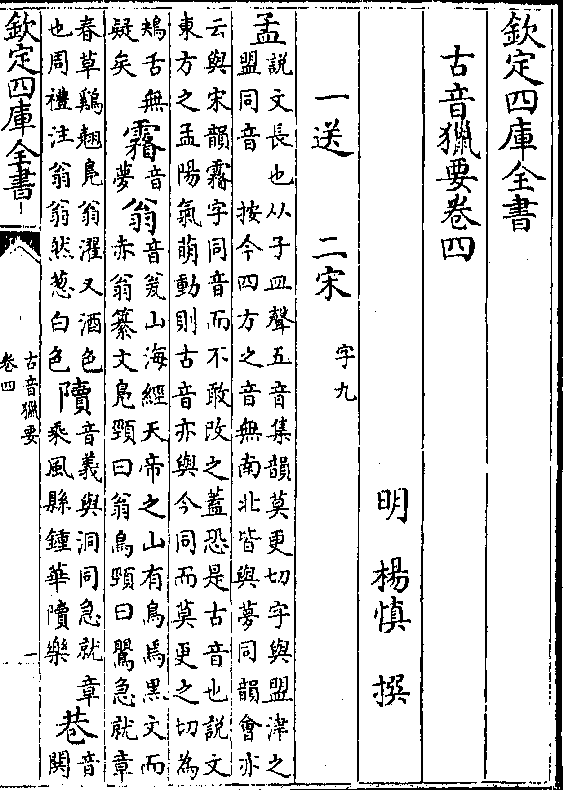 欽定四庫全書
古音獵要卷四
明 楊慎 撰
一送 二宋 字九
孟 說文長也从子皿聲五音集韻莫更切字與盟津之
盟同音 按今四方之音無南北皆與夢同韻會亦
云與宋韻霿字同音而不敢改之蓋恐是古音也說文
東方之孟陽氣萌動則古音亦與今同而莫更之切為
鴂舌無
疑矣
霿 音
夢
翁 音瓮山海經天帝之山有鳥焉黑文而
赤翁纂文鳬頸曰翁鳥頸曰 急就章
春草鷄翹鳬翁濯又酒色
也周禮注翁翁然葱白色
音義與洞同急就章
乘風縣鍾華 樂
巷 音
閧
欽定四庫全書
古音獵要
卷四
一